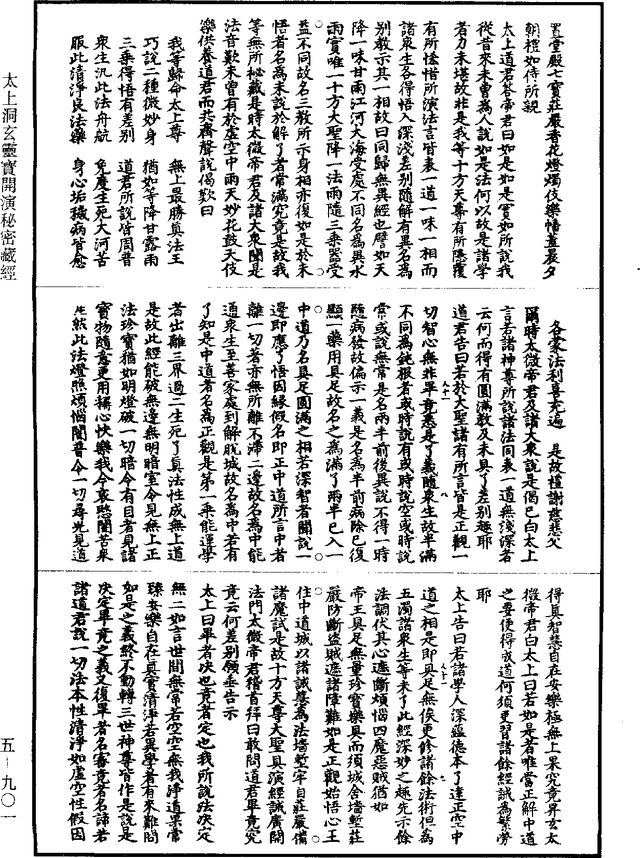 置堂殿七寶莊嚴香花燈燭伎樂幡蓋晨夕
朝禮如侍所親
太上道君荅帝君曰如是如是實如所說我
從昔來未曾為人說如是法何以故是諸學
者力未堪故非是我等十方天尊有所隱覆
有所悋惜所演法言皆表一道一味一相而
諸衆生各得悟入深淺差別隨解有異名為
別教示其一相故曰同歸無異經也譬如天
降一味甘雨江河大海受處不同名為異水
雨實唯一十方大聖降一法雨隨三乘器受
益不同故名三教所示身相亦復如是於未
悟者名為未說於解了者常滿究竟是故我
等無所祕藏是時太微帝君及諸大衆聞是
法音歎未曾有於虛空中雨天妙花鼓天伎
樂供養道君而共齊聲說偈歎曰
我等歸命太上尊　無上最勝真法王
巧說二種微妙身　猶如等降甘露雨
三乘得悟有差別　道君所說皆周普
衆生汎此法舟航　免度生死大河苦
服此清淨良法藥　身心垢穢病皆愈
各蒙法利喜充遍　是故稽謝慈悲父
爾時太微帝君及諸大衆說是偈已白太上
言若諸神尊所說諸法同表一道無淺深者
云何而得有圓滿教及未具了差別趣耶
道君告曰若於大聖諸有所言皆是正觀一
切智心無非畢竟悉是了義隨衆生故半滿
不同為鈍根者或時說有或時說空或時說
常或說無常是名兩半前後異說不得一時
隨病發故偏示一義是名為半前病除已復
顯一藥用具足故名之為滿了兩半已入一
中道乃名具足圓滿之相若深智者聞說一
邊即應了悟因緣假名即正中道所言中者
離一切著亦無所離不滯二邊故名為中能
通衆生至善家處到解脫城故名為中若有
了知是中道者名為正觀是第一乘能運學
者出離三界過二生死了真法性成無上道
是故此經能破無邊無明暗室令見無上正
法珍寶猶如明燈破一切暗令有目者見諸
寶物隨意更用稱心快樂我今哀愍闇苦衆
生然此法燈照煩惱闇普令一切尋光見道
得真智慧自在安樂極無上果究竟昇玄太
微帝君白太上曰若如是者唯當正解中道
之要便得成道何須更習諸餘經誡為繁勞
耶
太上告曰若諸學人深蘊德本了達正空中
道之相是即具足無俟更修諸餘法術但為
五濁諸衆生等未了此經深妙之趣先示餘
法調伏其心遮斷煩惱四魔惡賊猶如
帝王具足無量珍寶樂具而須城舍墻塹莊
嚴防斷盜賊遮諸障難如是正觀始悟心王
住中道城以諸誡慧為法墻塹牢自莊嚴備
諸魔試是故十方天尊大聖具演經誡廣開
法門太微帝君稽首拜曰敢問道君畢竟究
竟云何差別願垂告示
太上曰畢者决也竟者定也我所說法决定
無二如言世間無常若空空無我淨道果常
臻安樂自在真實清淨若異學者有來難問
如是之義終不動轉三世神尊皆作是說是
决定畢竟之義又復畢者名審竟者名諦若
諸道君說一切法本性清淨如虛空性假因
太上洞玄靈寶開演秘密藏經
五－九〇一